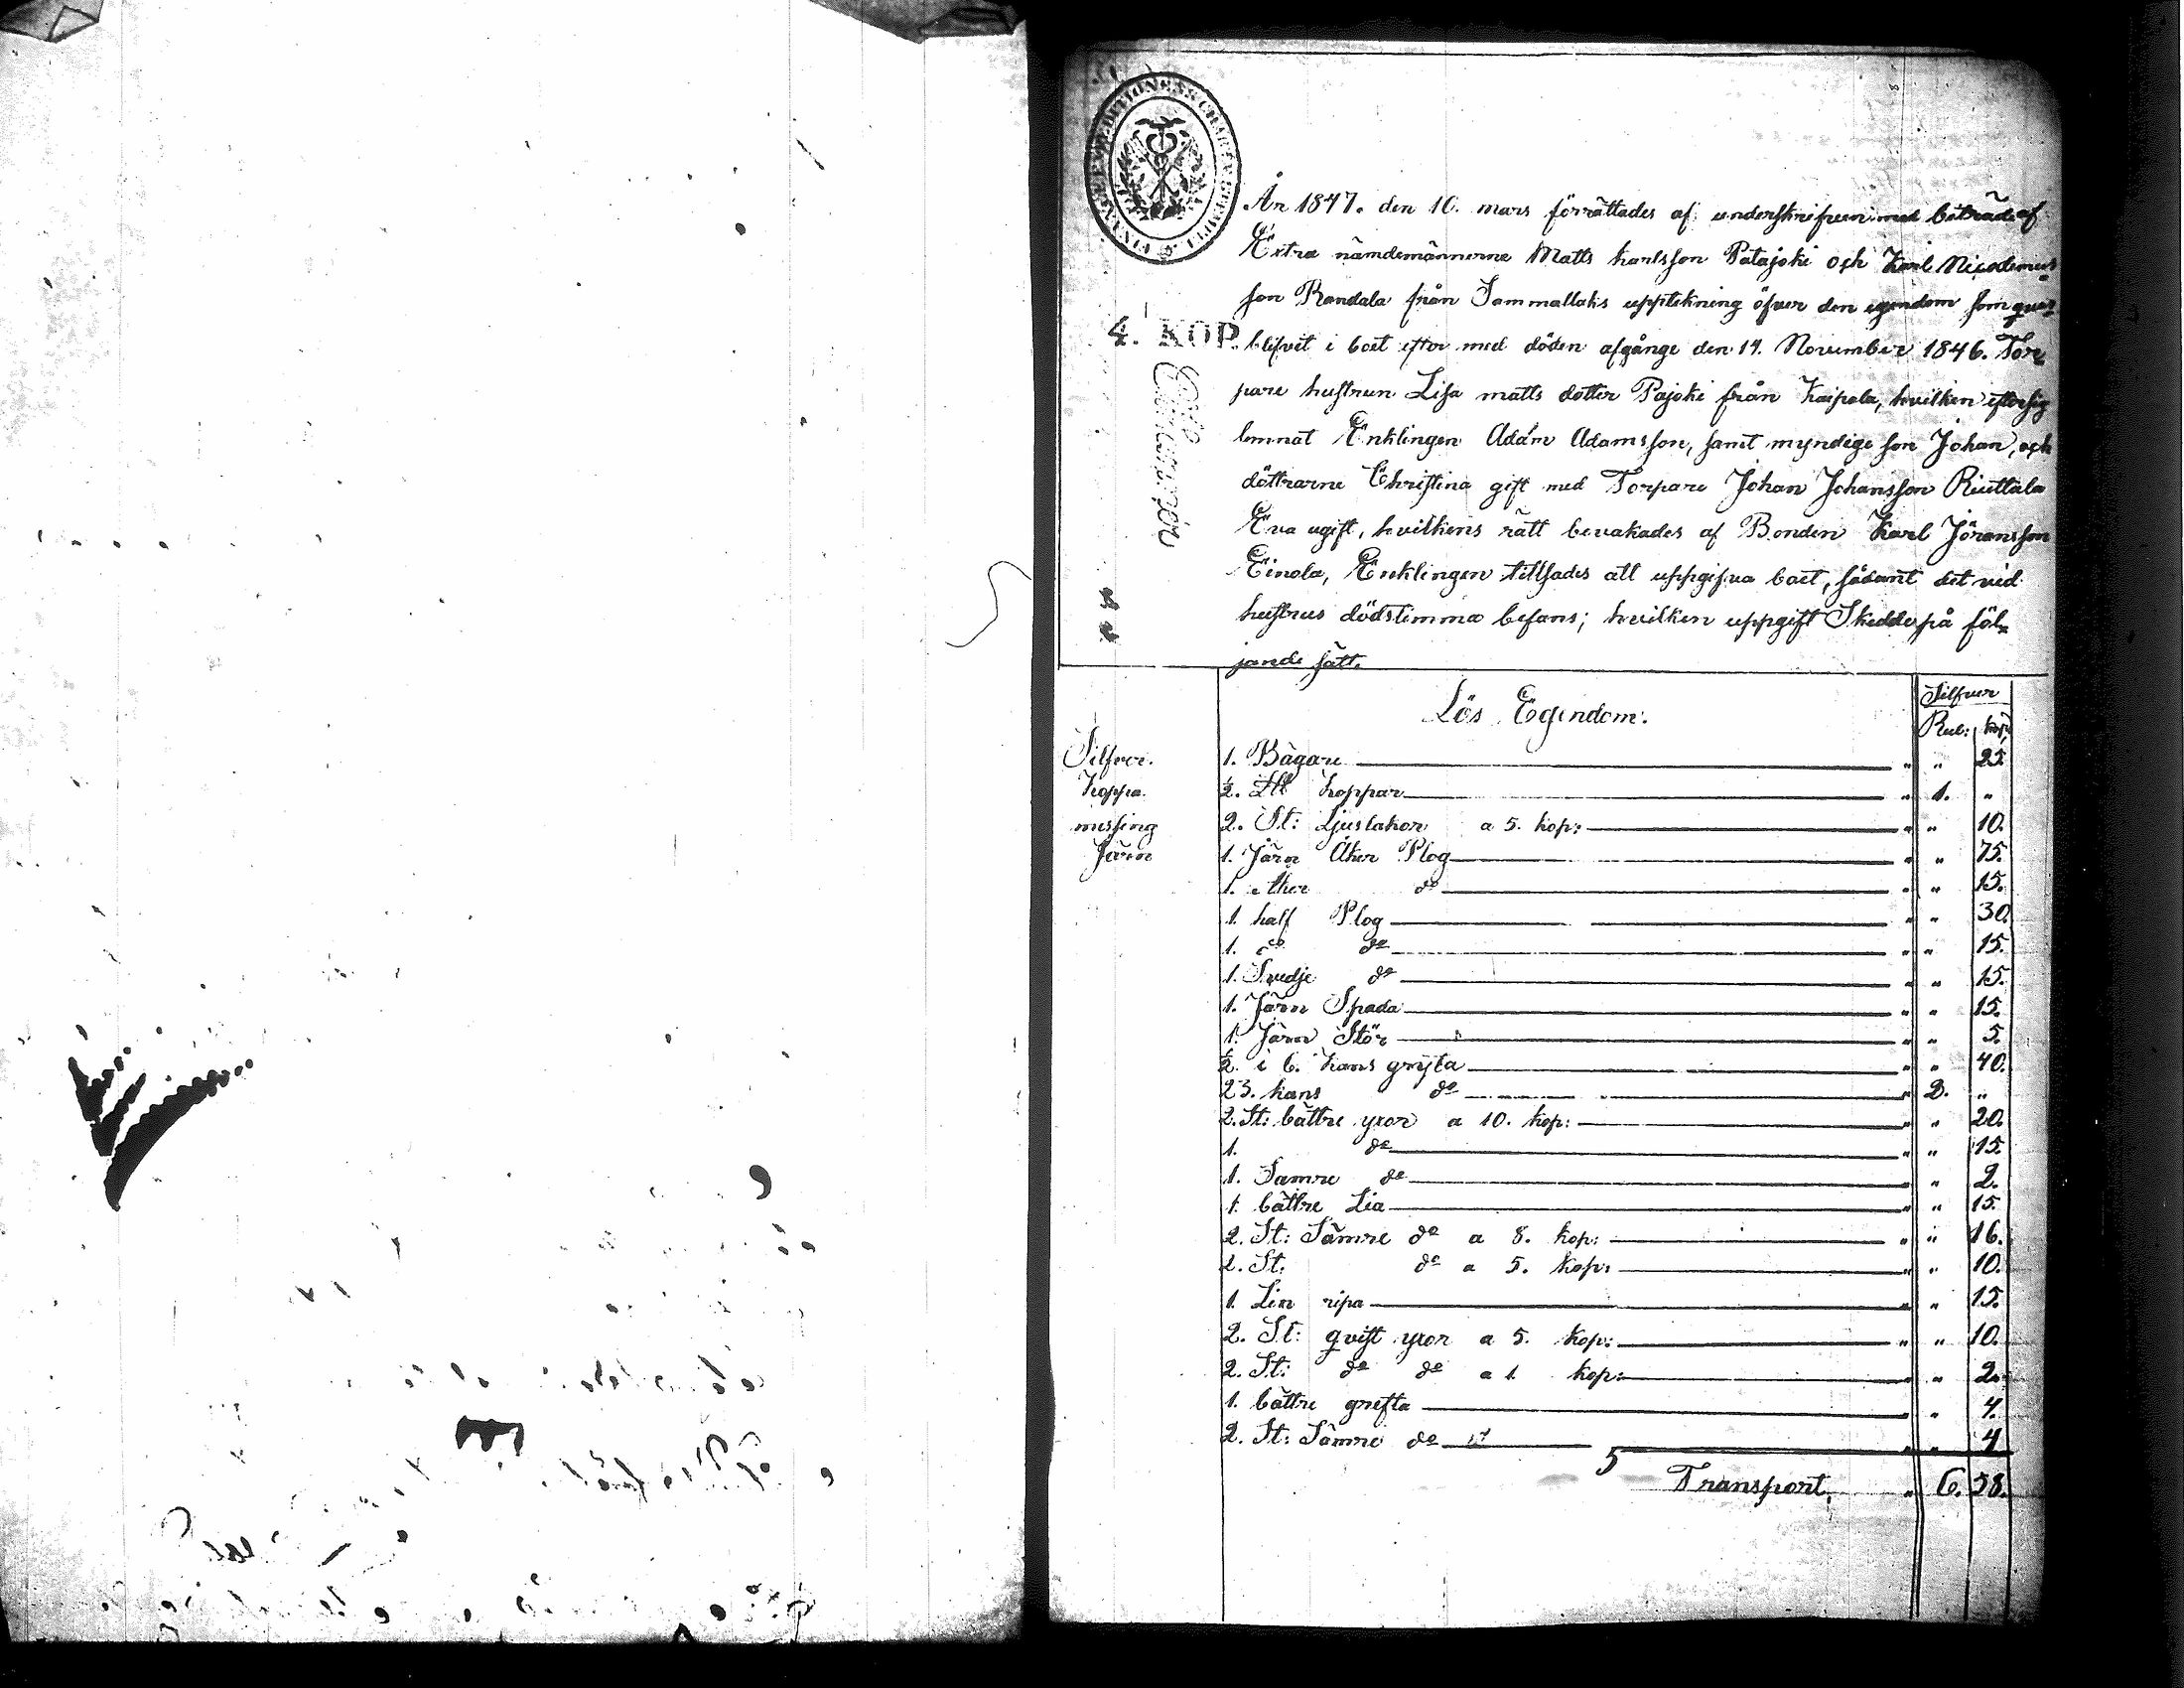 År 1847. den 10. mars förrättades af underskrifven med biträde af
Extra nämdemännerne Matts Karlsson Patajoki och Karl Nicodemus
son Randala från Sammallaks upptekning öfver den egendom som quar
4. KOP. blifvit i boet efter med döden afgånge den 14. November 1846. Tor
pare hustrun Lisa matts dotter Pajoki från Kaipola, hvilken eftersig
lemnat Enklingen Adam Adamsson, samt myndige son Johan, och
döttrarne Christina gift med Torpare Johan Johansson Riuttala
Eva ogift, hvilkens rätt bevakades af Bonden Karl Jöransson
Einola, Enklingen tillsades att uppgifva boet, sådant det vid
hustrus dödstimma befans; hvilken uppgift Skedde på föl=
jande sätt.
Lös Egendom. Silfver
Rub: kop:
Silfver. 1. Bägare " " 25.
Koppa. ½. L℔ Koppar " 1. "
missing 2. St: Ljustakor a 5. kop: " " 10.
Järn 1. Järn Åker Plog " " 75.
1. Åker do " " 15.
1 half Plog " " 30.
1. do do " " 15.
1. Svedje do " " 15.
1. Järn Spada " " 15.
1. Järn Stör " " 5.
½ i 6. kans gryta " " 40.
23. kans do " 2. "
2. St: bättre yxor a 10. kop: " " 20.
1. do " " 15.
1. Samre do " " 2.
1. bättre Lia " " 15.
2. St: Sämre do a 8. kop: " " 16.
2. St: do a 5. kop: " " 10.
1. Lin ripa " " 15.
2. St: qvist yxor a 5. kop: " " 10.
2. St: do do a 1. kop: " " 2.
1. bättre grefta " " 4.
2. St: Sämre do " " 4
Transport, " 6. 58.